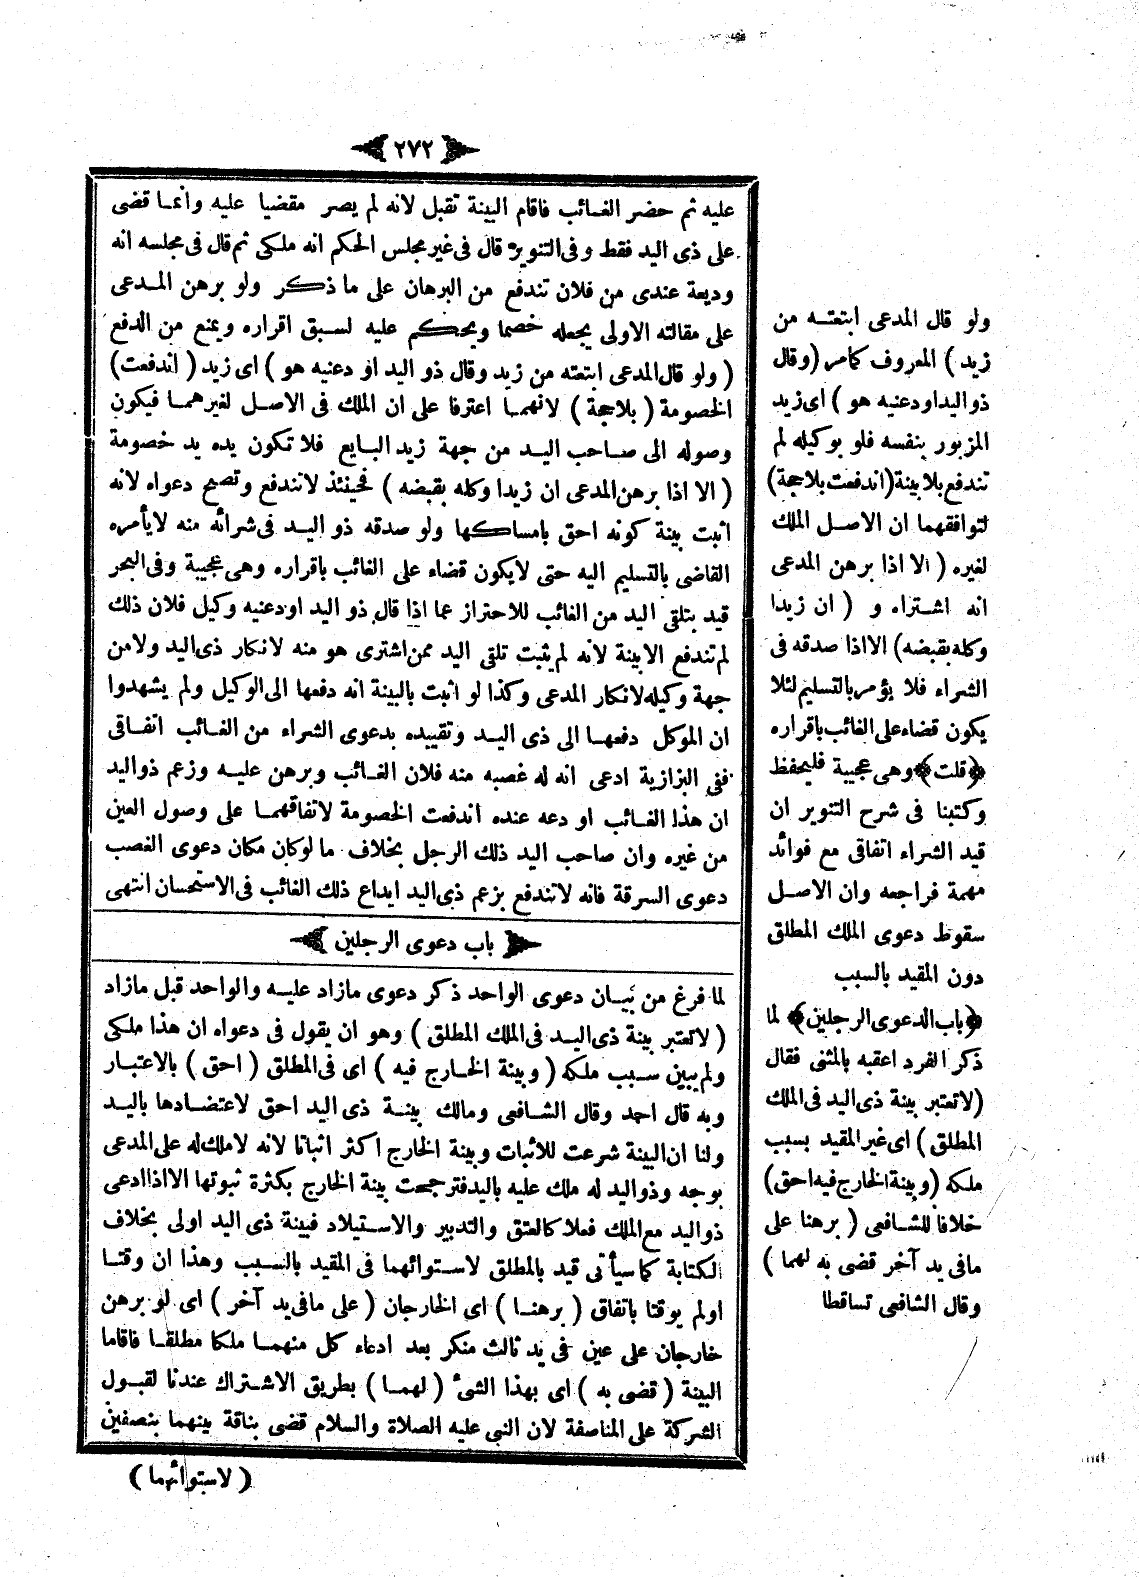 ٢٧٢
عليه ثم حضر الغائب فاقام البينة تقبل لانه لم يصر مقضيا عليه وانما قضى
على ذى اليد فقط وفى التنوير قال فى غير مجلس الحكم انه ملكى ثم قال فى مجلسه انه
وديعة عندى من فلان تندفع من البرهان على ما ذكر ولو برهن المدعى
على مقالته الاولى يجعله خصما ويحكم عليه لسبق اقراره ويمنع من الدفع
( ولو قال المدعى ابتعته من زيد وقال ذو اليد او دعنيه هو ) اى زيد ( اندفعت )
الخصومة ( بلا حجة ) لانهما اعترفا على ان الملك فى الاصل لغيرهما فيكون
وصوله الى صاحب اليد من جهة زيد البايع فلا تكون يده يد خصومة
( الا اذا برهن المدعى ان زيدا وكله بقبضه ) فحينئذ لاتندفع وتصح دعواه لانه
اثبت بينة كونه احق بامساكها ولو صدقه ذو اليد فى شرائه منه لايأمره
القاضى بالتسليم اليه حتى لايكون قضاء على الغائب باقراره وهى عجيبة وفى البحر
قيد بتلقى اليد من الغائب للاحتراز عما اذا قال ذو اليد اودعنيه وكيل فلان ذلك
لم تندفع الا بينة لانه لم يثبت تلقى اليد ممن اشترى هو منه لانكار ذى اليد ولا من
جهة وكيله لانكار المدعى وكذا لو اثبت بالبينة انه دفعها الى الوكيل ولم يشهدوا
ان الموكل دفعها الى ذى اليد وتقييده بدعوى الشراء من الغائب اتفاقى
ففى البزازية ادعى انه له غصبه منه فلان الغائب وبرهن عليه وزعم ذو اليد
ان هذا الغائب او دعه عنده اندفعت الخصومة لاتفاقهما على وصول العين
من غيره وان صاحب اليد ذلك الرجل بخلاف ما لو كان مكان دعوى الغصب
دعوى السرقة فانه لاتندفع بزعم ذى اليد ايداع ذلك الغائب فى الاستحسان انتهى
باب دعوى الرجلين
لما فرغ من بيان دعوى الواحد ذكر دعوى مازاد عليه والواحد قبل مازاد
( لاتعتبر بينة ذى اليد فى الملك المطلق ) وهو ان يقول فى دعواه ان هذا ملكى
ولم يبين سبب ملكه ( وبينة الخارج فيه ) اى فى المطلق ( احق ) بالاعتبار
وبه قال احمد وقال الشافعى ومالك بينة ذى اليد احق لاعتضادها باليد
ولنا ان البينة شرعت للاثبات وبينة الخارج اكثر اثباتا لانه لا ملك له على المدعى
بوجه وذو اليد له ملك عليه باليد فترجحت بينة الخارج بكثرة ثبوتها الا اذا ادعى
ذو اليد مع الملك فعلا كالعتق والتدبير والاستيلاد فبينة ذى اليد اولى بخلاف
الكتابة كما سيأتى قيد بالمطلق لاستوائهما فى المقيد بالسبب وهذا ان وقتا
اولم يوقتا باتفاق ( برهنا ) اى الخارجان ( على ما فى يد آخر ) اى لو برهن
خارجان على عين فى يد ثالث منكر بعد ادعاء كل منهما ملكا مطلقا فاقاما
البينة ( قضى به ) اى بهذا الشئ ( لهما ) بطريق الاشتراك عندنا لقبول
الشركة على المناصفة لان النبى عليه الصلاة والسلام قضى بناقة بينهما بنصفين
( لاستوائهما )
ولو قال المدعى ابتعته من
زيد ) المعروف كمامر (وقال
ذو اليد اودعنيه هو ) اى زيد
المزبور بنفسه فلو بوكيله لم
تندفع بلا بينة (اندفعت بلا حجة)
لتوافقهما ان الاصل الملك
لغيره ( الا اذا برهن المدعى
انه اشتراه و ( ان زيدا
وكله بقبضه) الا اذا صدقه فى
الشراء فلا يؤمر بالتسليم لئلا
يكون قضاء على الغائب باقراره
﴿قلت﴾ وهى عجيبة فليحفظ
وكتبنا فى شرح التنوير ان
قيد الشراء اتفاقى مع فوائد
مهمة فراجعه وان الاصل
سقوط دعوى الملك المطلق
دون المقيد بالسبب
﴿باب الدعوى الرجلين﴾ لما
ذكر الفرد اعقبه بالمثنى فقال
(لا تعتبر بينة ذى اليد فى الملك
المطلق ) اى غير المقيد بسبب
ملكه (وبينة الخارج فيه احق)
خلافا للشافعى ( برهنا على
مافى يد آخر قضى به لهما )
وقال الشافعى تساقطا